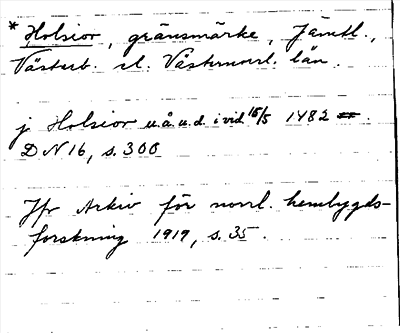 * Holsior, gränsmärke, Jämtl.,
Västerb. el. Västernorrl. län.
j Holsior u.å.u.d. i vid. 15/5 1482
DN 16, s. 300
Jfr Arkiv för norrl. hembygds-
forskning 1919, s. 35.